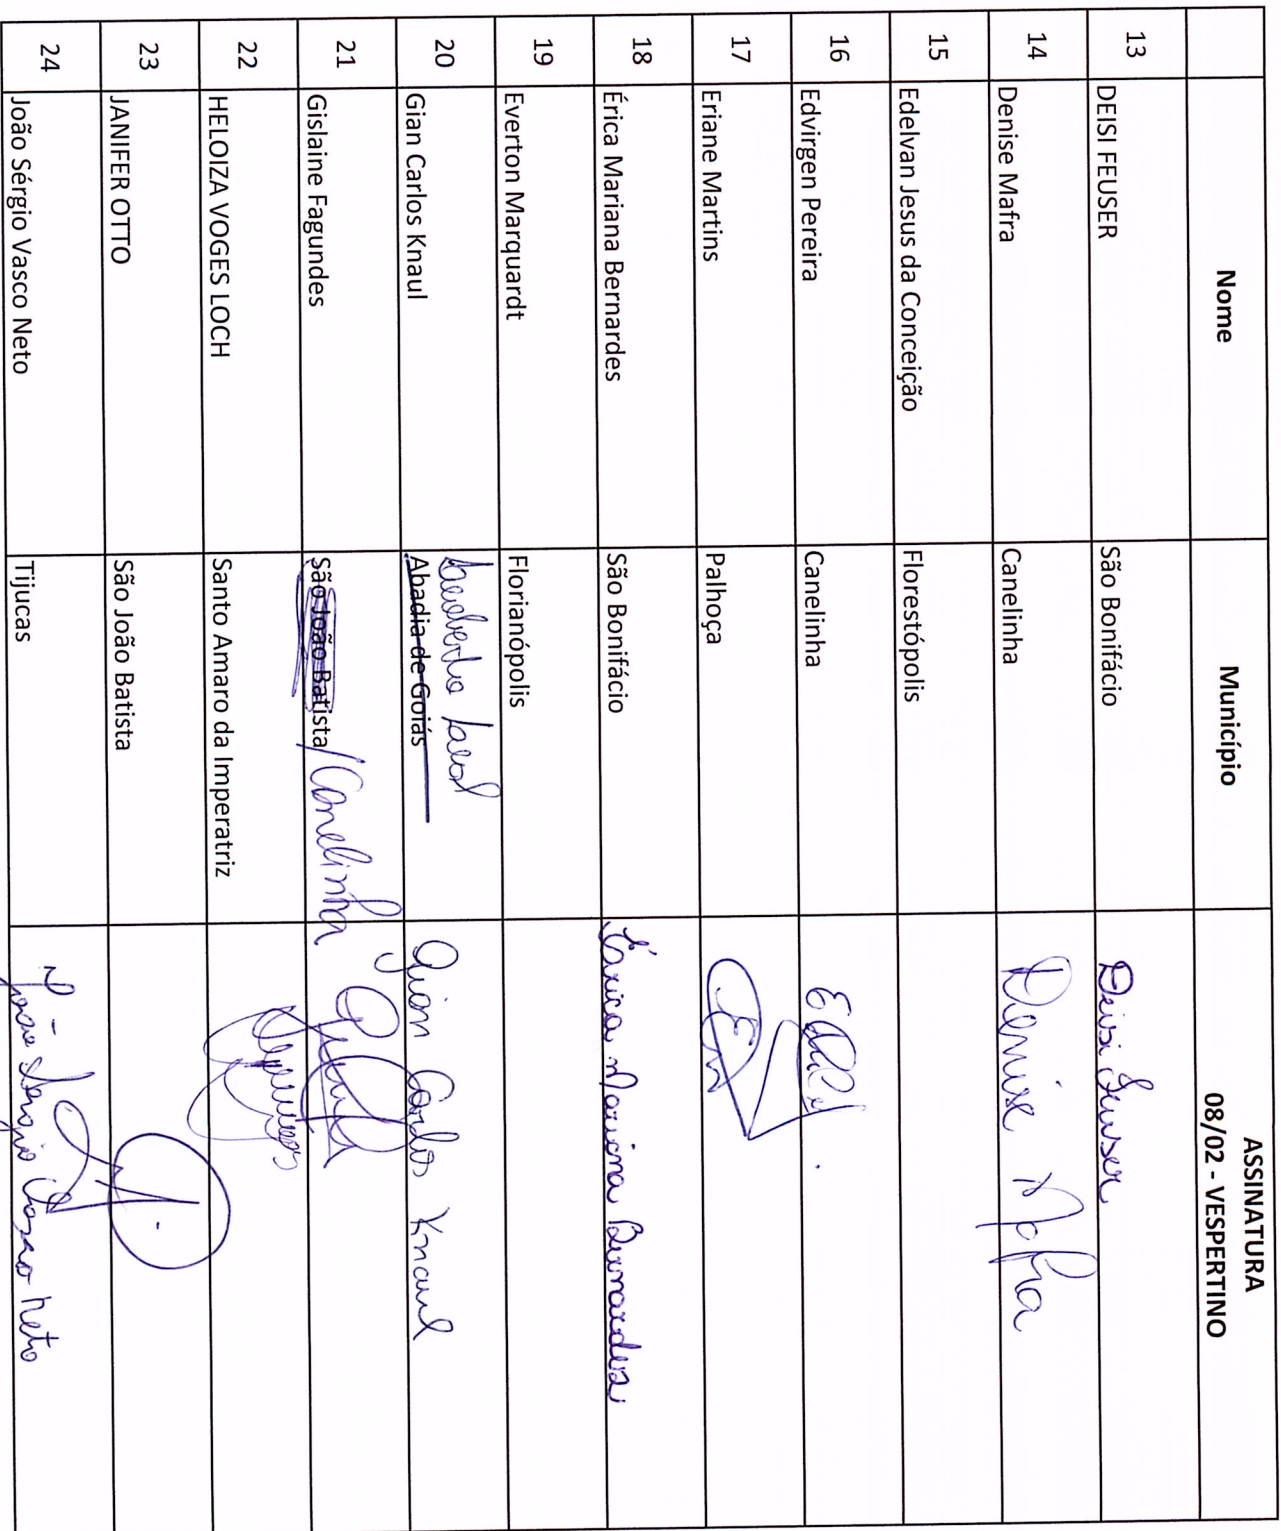 Nome Município ASSINATURA
08/02 - VESPERTINO
13 DEISI FEUSER São Bonifácio Deisi Feuser
14 Denise Mafra Canelinha Denise Mafra
15 Edelvan Jesus da Conceição Florestópolis
16 Edvirgen Pereira Canelinha
17 Eriane Martins Palhoça
18 Érica Mariana Bernardes São Bonifácio Érica Mariana Bernardes
19 Everton Marquardt Florianópolis
20 Gian Carlos Knaul Abadia de Goiás Gian Carlos Knaul
21 Gislaine Fagundes São João Batista / Canelinha
22 HELOIZA VOGES LOCH Santo Amaro da Imperatriz
23 JANIFER OTTO São João Batista
24 João Sérgio Vasco Neto Tijucas João Sérgio Vasco Neto